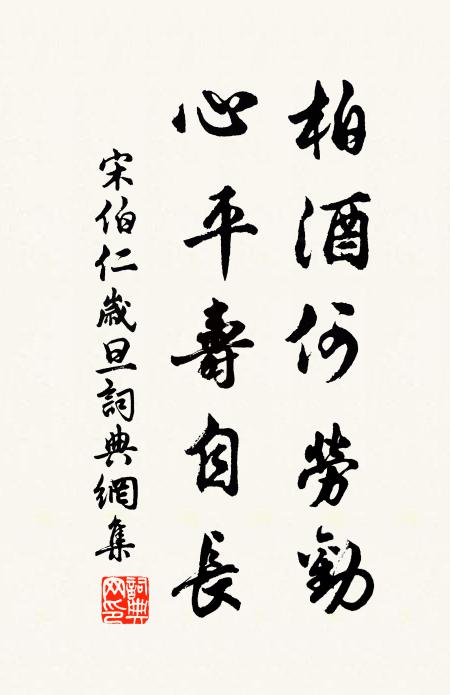 柏酒何勞勸
心平壽自長
宋伯仁歲旦詞典網集
詞典網印